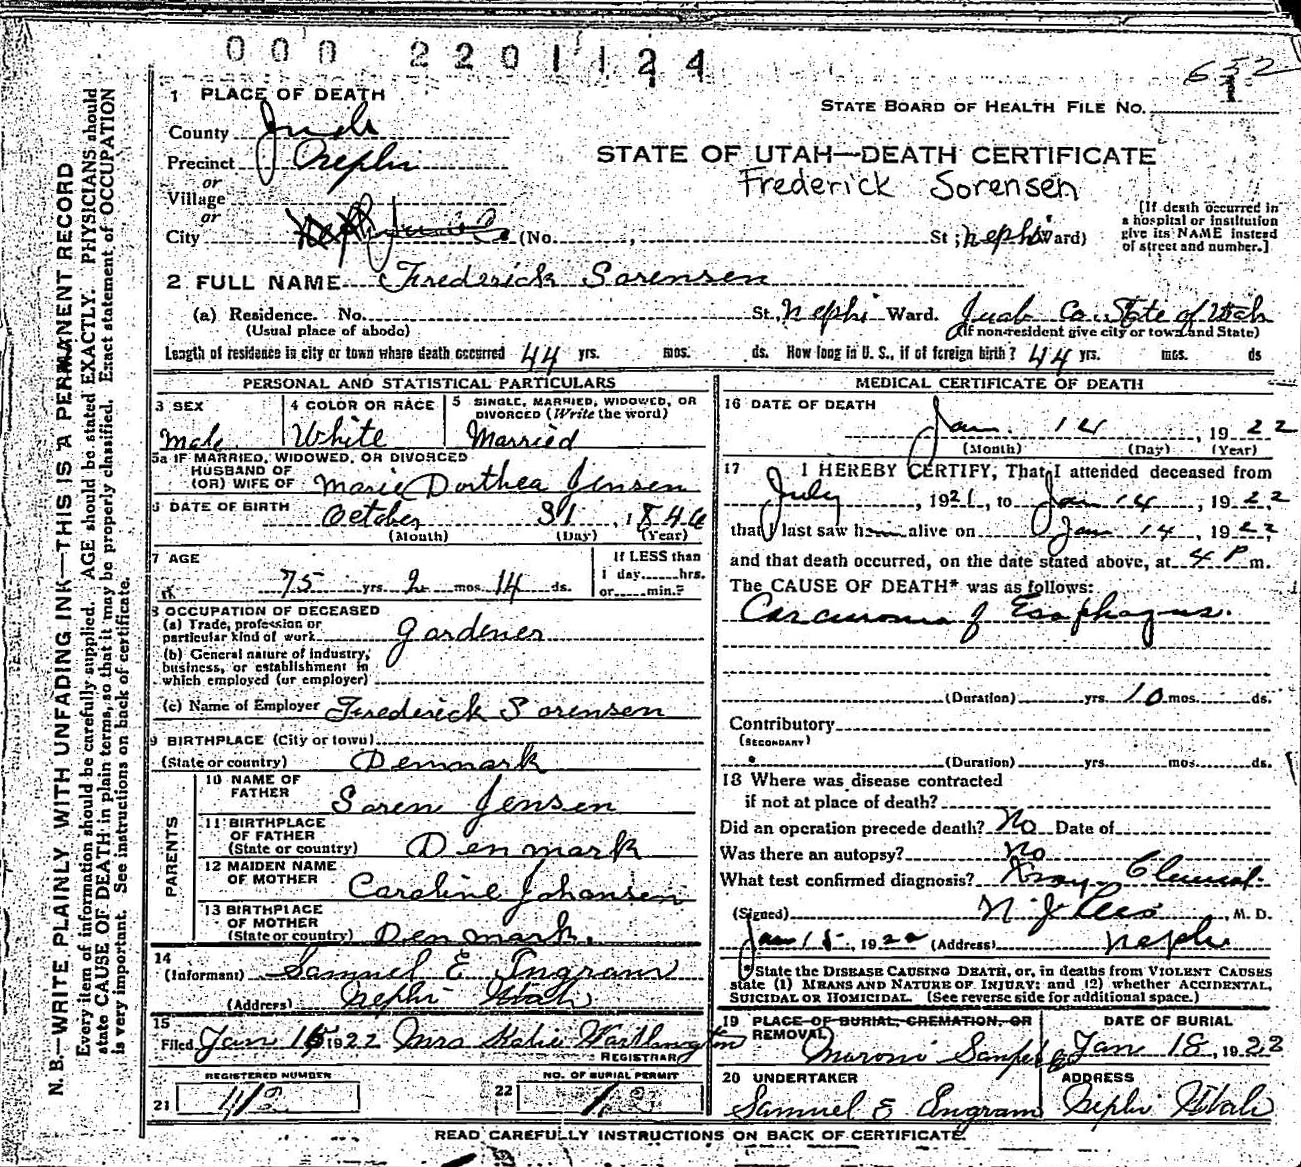 000 2201124
652
1 PLACE OF DEATH
STATE BOARD OF HEALTH FILE NO.
County Juab
Precinct Nephi
or
Village
or
City (No. , St; Nephi Ward)
STATE OF UTAH—DEATH CERTIFICATE
Frederick Sorensen
[If death occurred in
a hospital or institution
give its NAME instead
of street and number.]
2 FULL NAME Frederick Sorensen
(a) Residence. No. St, Nephi Ward. Juab Co. State of Utah
(Usual place of abode) (If non-resident give city or town and State)
Length of residence in city or town where death occurred 44 yrs. mos. ds. How long in U. S., if of foreign birth? 44 yrs. mos. ds
PERSONAL AND STATISTICAL PARTICULARS
3 SEX
Male
4 COLOR OR RACE
White
5 SINGLE, MARRIED, WIDOWED, OR
DIVORCED (Write the word)
Married
5a IF MARRIED, WIDOWED, OR DIVORCED
HUSBAND OF
(OR) WIFE OF Marie Dorthea Jensen
6 DATE OF BIRTH October 31, 1846
(Month) (Day) (Year)
7 AGE
75 yrs. 2 mos. 14 ds.
If LESS than
1 day......hrs.
or......min.?
8 OCCUPATION OF DECEASED
(a) Trade, profession or
particular kind of work gardener
(b) General nature of industry,
business, or establishment in
which employed (or employer)
(c) Name of Employer Frederick Sorensen
9 BIRTHPLACE (City or town)
(State or country) Denmark
PARENTS
10 NAME OF
FATHER Soren Jensen
11 BIRTHPLACE
OF FATHER
(State or country) Denmark
12 MAIDEN NAME
OF MOTHER Caroline Johansen
13 BIRTHPLACE
OF MOTHER
(State or country) Denmark.
14
(Informant) Samuel E Ingram
(Address) Nephi Utah
15
Filed Jan 16 1922 Mrs Katie Worthington
REGISTRAR
REGISTERED NUMBER
21
NO. OF BURIAL PERMIT
22
MEDICAL CERTIFICATE OF DEATH
16 DATE OF DEATH
Jan. 14, 1922
(Month) (Day) (Year)
17 I HEREBY CERTIFY, That I attended deceased from
July, 1921, to Jan 14, 1922
that I last saw him alive on Jan 14, 1922,
and that death occurred, on the date stated above, at 4 P m.
The CAUSE OF DEATH* was as follows:
Carcinoma of Esophagus.
(Duration) yrs. 10 mos. ds.
Contributory
(SECONDARY)
(Duration) yrs. mos. ds.
18 Where was disease contracted
if not at place of death?
Did an operation precede death? No Date of
Was there an autopsy? no
What test confirmed diagnosis? Xray Clinical.
(Signed) M. D.
Jan 15, 1922 (Address) Nephi
*State the DISEASE CAUSING DEATH, or, in deaths from VIOLENT CAUSES
state (1) MEANS AND NATURE OF INJURY; and (2) whether ACCIDENTAL,
SUICIDAL OR HOMICIDAL. (See reverse side for additional space.)
19 PLACE OF BURIAL, CREMATION, OR
REMOVAL
Moroni Sanpete
DATE OF BURIAL
Jan 18, 1922
20 UNDERTAKER
Samuel E Ingram
ADDRESS
Nephi Utah
READ CAREFULLY INSTRUCTIONS ON BACK OF CERTIFICATE.
N. B.—WRITE PLAINLY WITH UNFADING INK—THIS IS A PERMANENT RECORD
Every item of information should be carefully supplied. AGE should be stated EXACTLY. PHYSICIANS should
state CAUSE OF DEATH in plain terms, so that it may be properly classified. Exact statement of OCCUPATION
is very important. See instructions on back of certificate.